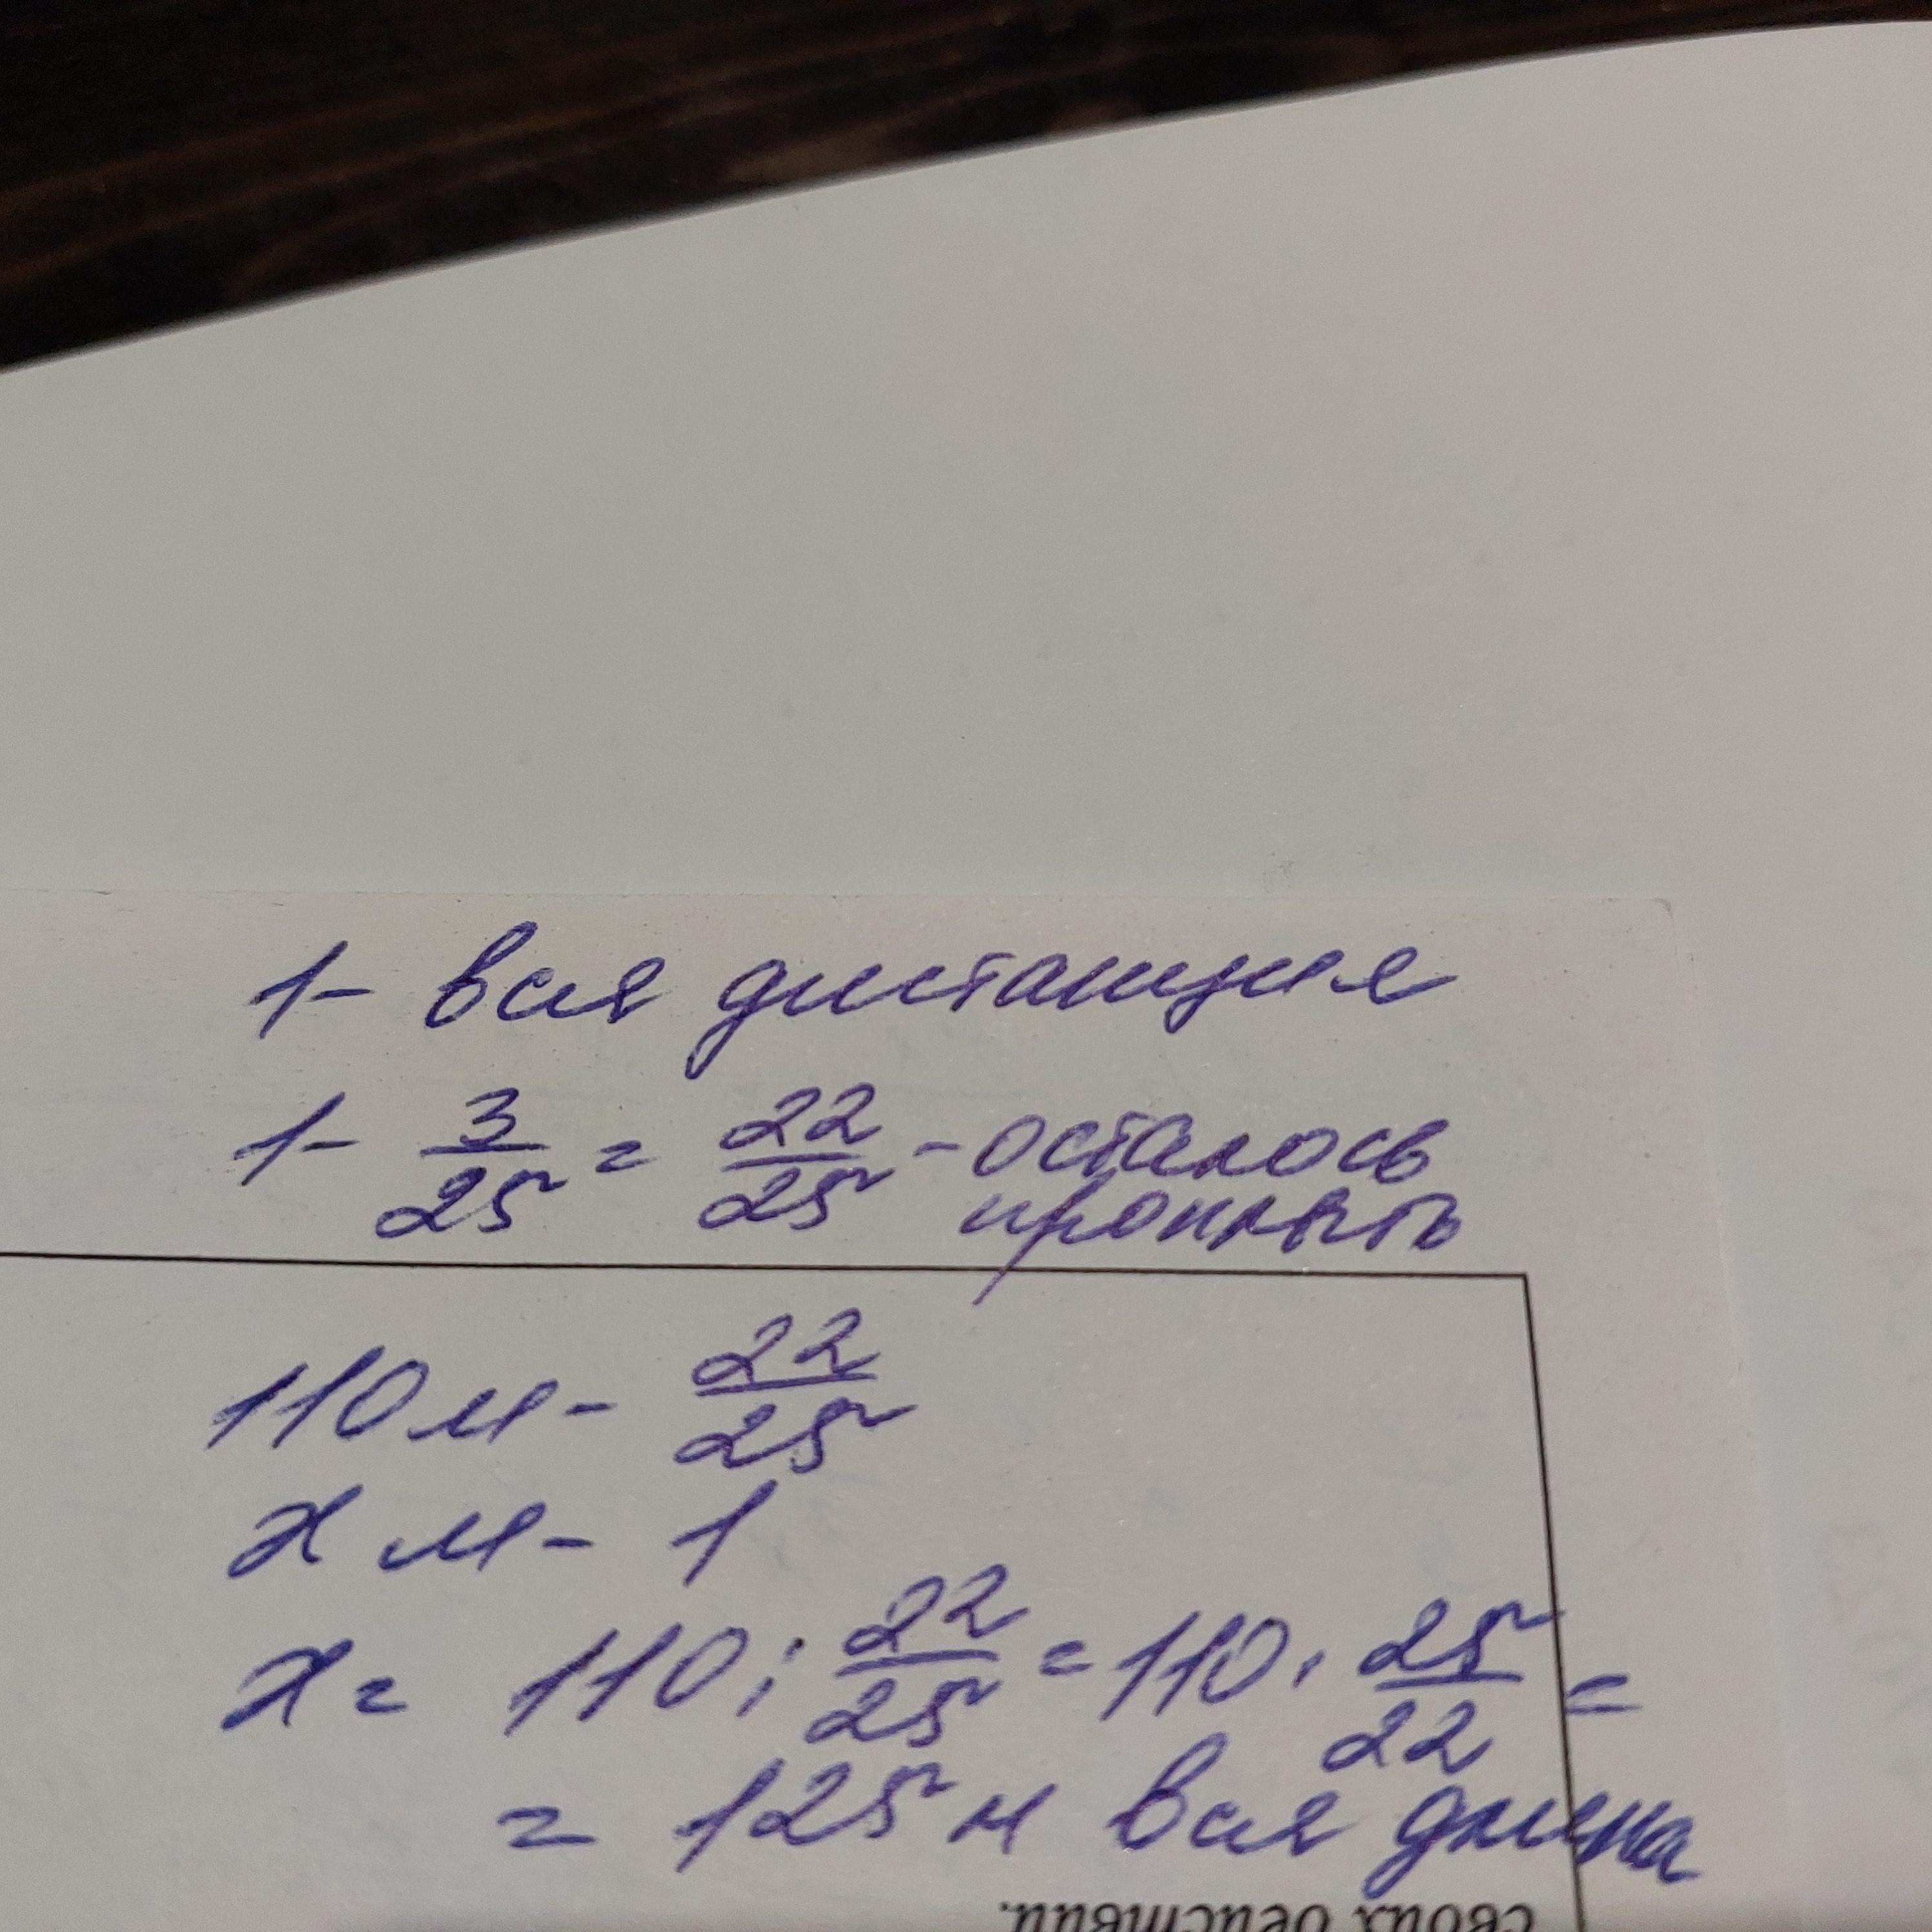 1- вся дистанция
1- 3/25 = 22/25 - осталось
проплыть
110м - 22/25
х м - 1
х = 110 : 22/25 = 110 · 25/22 =
= 125 м вся длина
своих действий.